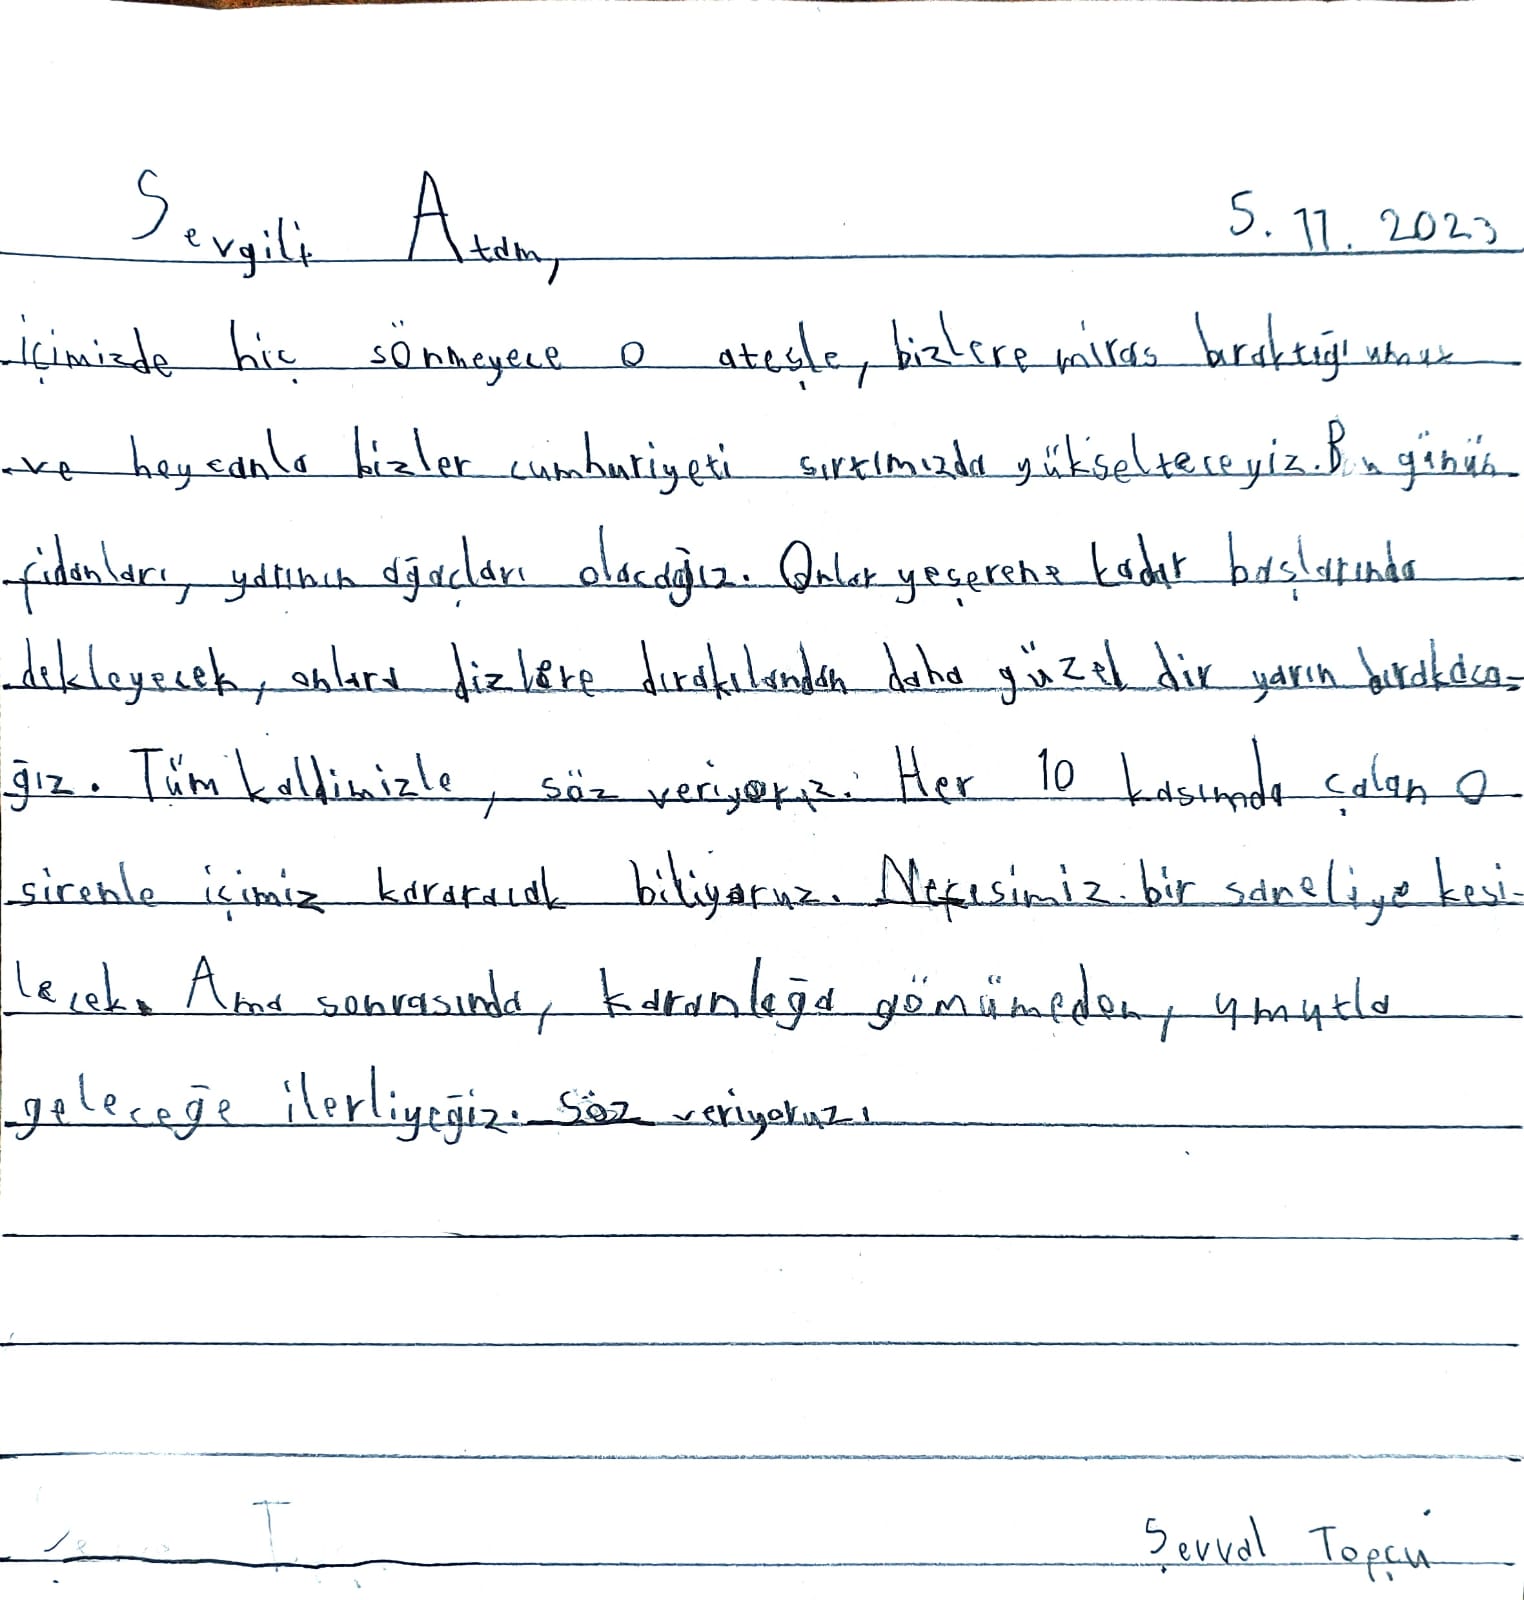 Sevgili Atam, 5.11.2023
içimizde hiç sönmeyece o ateşle, bizlere miras bıraktığı umut
ve heycanla bizler cumhuriyeti sırtımızda yükselteceyiz. Bu günün
fidanları, yarının ağaçları olacağız. Onlar yeşerene kadar başlarında
dekleyecek, onlara dizlere dırakılandan daha güzel dir yarın bırakaca-
ğız. Tüm kaldimizle, söz veriyoruz. Her 10 kasımda çalan o
sirenle içimiz kararacak biliyoruz. Nefesimiz bir saneliye kesi-
lecek. Ama sonrasında, karanlağa gömümeden, umutla
geleceğe ilerliyeğiz. Söz veriyoruz.
Şevval Topçu